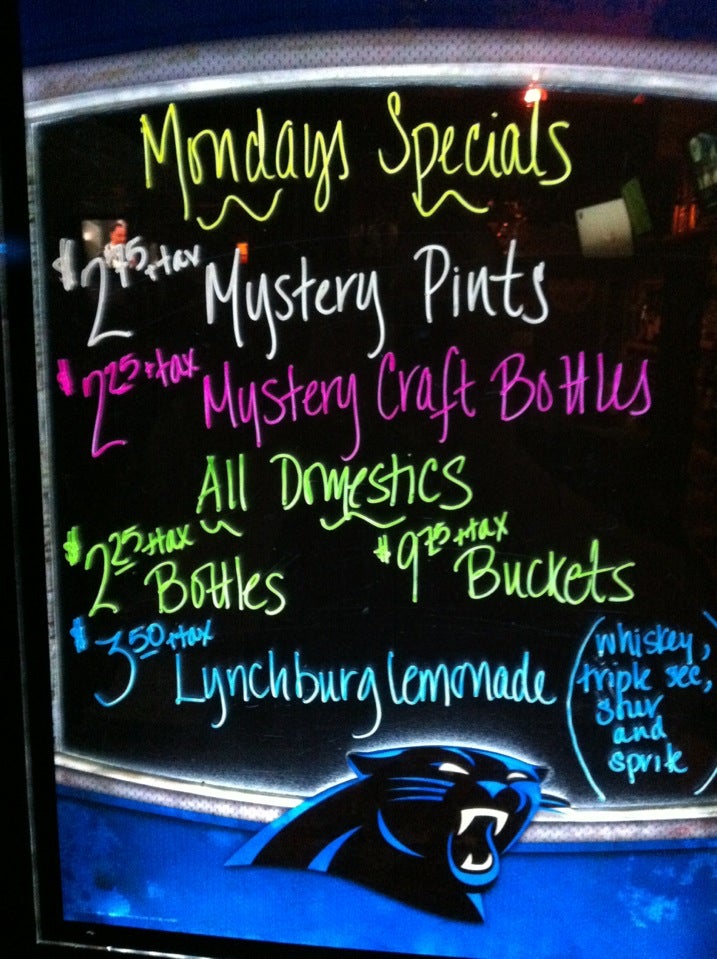 Mondays Specials
$2.75 + tax Mystery Pints
$2.25 + tax Mystery Craft Bottles
All Domestics
$2.25 + tax Bottles $9.75 + tax Buckets
$3.50 + tax Lynchburg lemonade (whiskey,
triple sec,
sour
and
sprite)